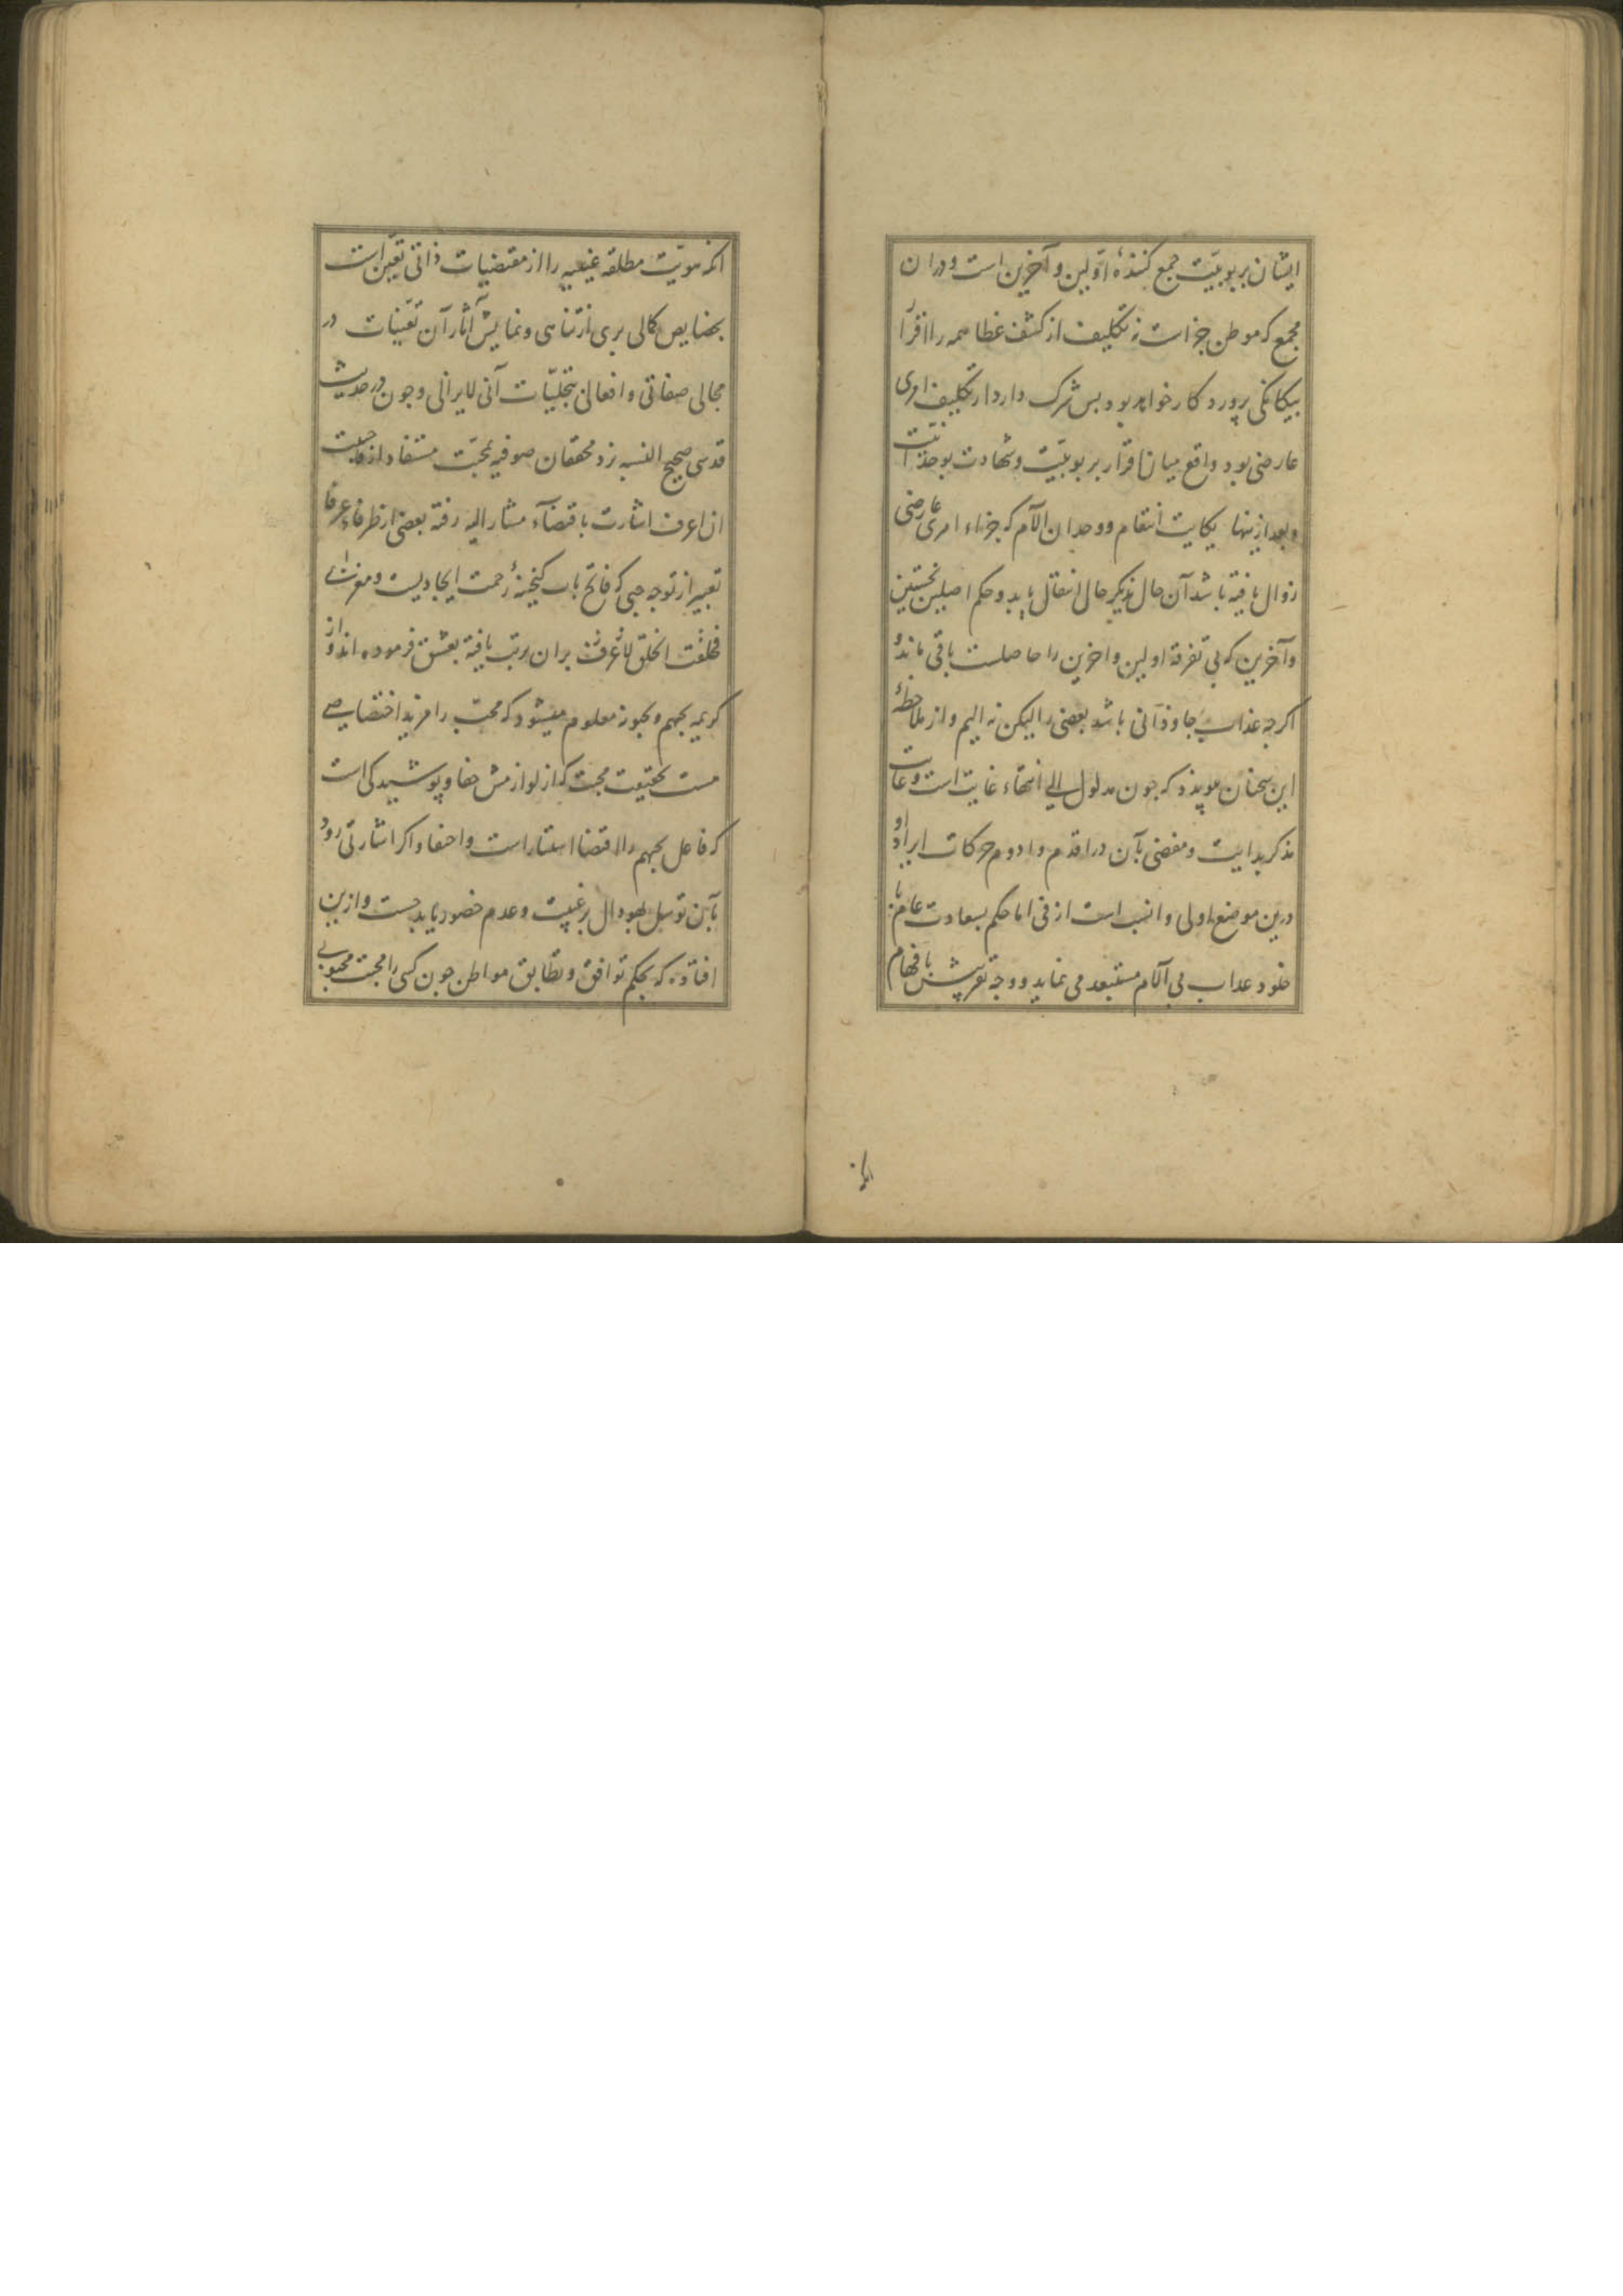 ایشان بربوبیّت جمع کنندهٔ اوّلین و آخرین است و دران
مجمع که موطن جزاست نه تکلیف از کشف غطا همه را اقرار
بیکانکی پروردکار خواهد بود بس شرک دار دار تکلیف امری
عارضی بود واقع میان اقرار بربوبیّت و شهادت بوحدانیّت
و بعد ازینها یکایت انتقام و وجدان آلام که جزاء امری عارضی
زوال یافته باشد آن حال بدیکر حال انتقال یابد و حکم اصلین نخستین
و آخرین که بی تفرقه اولین و اخرین را حاصلست باقی ماند و
اکرجه عذاب جاوذانی باشد بعضی را لیکن نه الیم و از ملاحظهٔ
این سخنان موید ذکر جون مدلول الی انتهاء غایت است و غایت
مذکر بدایت و مفضی بآن در اقدم و ادوم حرکات ایراد او
درین موضع اولی و انسب است از فی اما حکم بسعادت عام با
خلود عذاب بی آلام مستبعد می نماید و وجه تقریبش بافهام
آنکه
انکه هویّت مطلقه غیبیه را از مقتضیات ذاتی تعیّن است
بخصایص کمالی بری از تناهی و نمایش آثار آن تعیّنات در
مجالی صفاتی و افعالی بتجلیّات آنی لایزالی و جون در حدیث
قدسی صحیح النسبه نزد محققان صوفیه بمحبّت مستفاد از فاحببت
ان اعرف اشارت باقتضآء مشار الیه رفته بعضی از ظرفاء عرفا
تعبیر از توجه حبی که فاتح باب کنجینهٔ رحمت ایجادیست و معرفت
فخلقت الخلق لاعرف بران مرتب یافته بعشق فرموده اند و از
کریمه یحبهم و یحبونه معلوم میشود که محبّ را مزید اختصاصی
هست بحقیقت محبت که از لوازمش خفا و پوشیدکی است
که فاعل یحبهم را اقتضا استتار است و اخفا و اکر اشارتی رود
بآن توسل بهو دال بر غیبت و عدم حضور باید جست و ازین
افتاده که بحکم توافق و تطابق مواطن جون کسی را محبت محبوبی